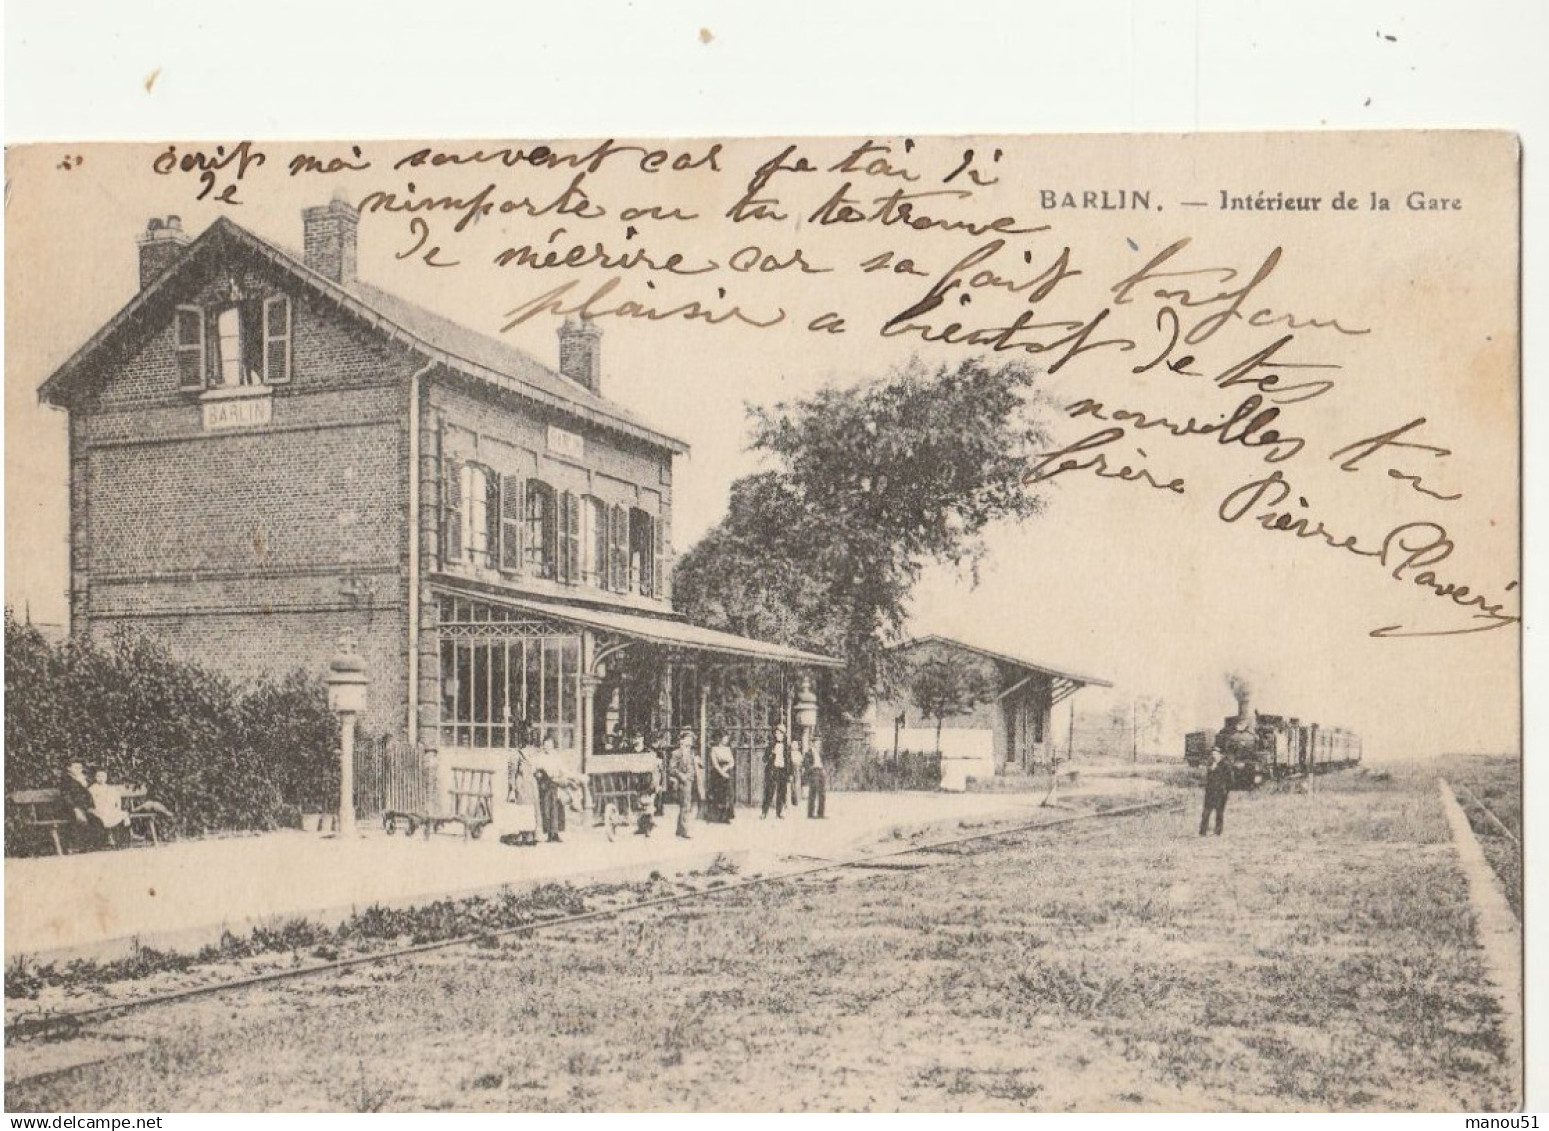 écrit moi souvent car je tai di
de nimporte ou tu te trouve
de mécrire car sa fait toujour
plaisir a bientot de tes
nouvelles ton
frère Pierre Claverie
BARLIN. — Intérieur de la Gare
BARLIN
manou51